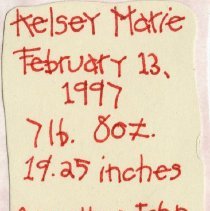 Kelsey Marie
February 13,
1997
7 lb. 8 oz.
19.25 inches